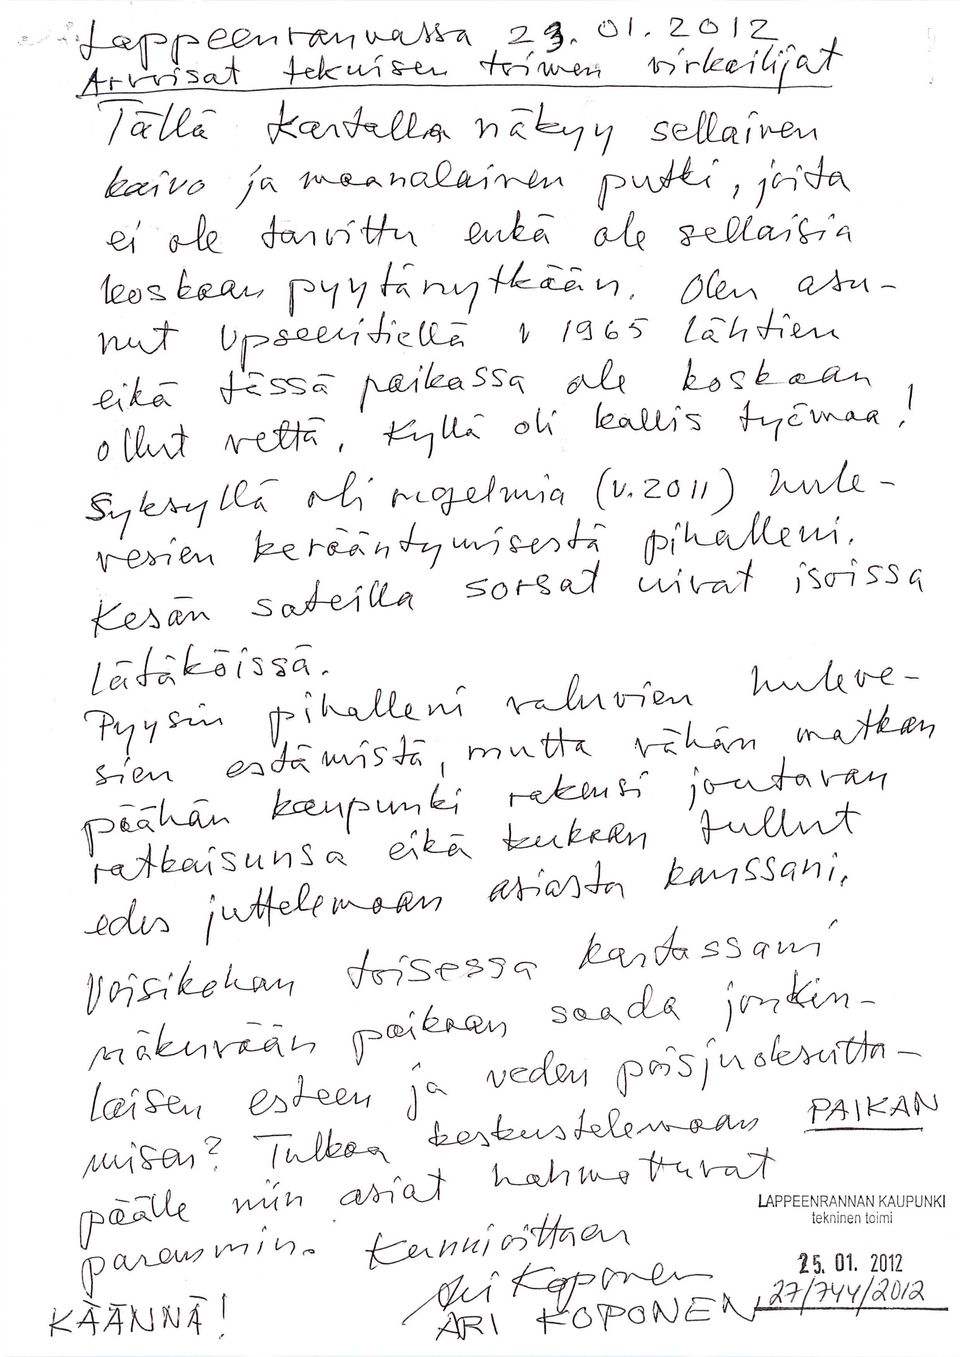 Lappeenrannassa 23.01.2012
Arvoisat teknisen toimen virkailijat
Tällä kartalla näkyy sellainen
kaivo ja maanalainen putki, joita
ei ole tarvittu enkä ole sellaisia
koskaan pyytänytkään. Olen asu-
nut Upseeritiellä v 1965 lähtien
eikä tässä paikassa ole koskaan
ollut vettä. Kyllä oli kallis työmaa!
Syksyllä oli ongelmia (v. 2011) hule-
vesien kerääntymisestä pihalleni.
Kesän sateilla sorsat uivat isoissa
lätäköissä.
Pyysin pihalleni valuvien huleve-
sien estämistä, mutta vähän matkan
päähän kaupunki rakensi joutavan
ratkaisunsa eikä kukaan tullut
edes juttelemaan asiasta kanssani.
Voisikohan toisessa kartassani
näkyvään paikaan saada jonkin-
laisen esteen ja veden poisjuoksutta-
misen? Tulkaa keskustelemaan PAIKAN
päälle niin asiat hahmottuvat
paremmin. Kunnioittaen
Ari Koponen
KÄÄNNÄ! ARI KOPONEN
LAPPEENRANNAN KAUPUNKI
tekninen toimi
25. 01. 2012
27/744/2012